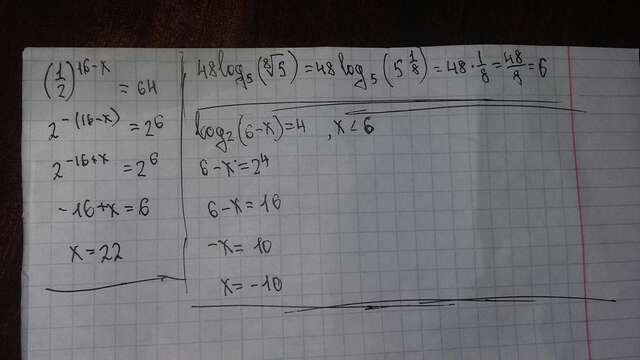 (1/2)^(16-x) = 64
2^(-(16-x)) = 2^6
2^(-16+x) = 2^6
-16+x=6
x=22
48log₅(⁸√5)=48log₅(5^(1/8))=48·1/8=48/8=6
log₂(6-x)=4 , x<6
6-x=2⁴
6-x=16
-x=10
x=-10